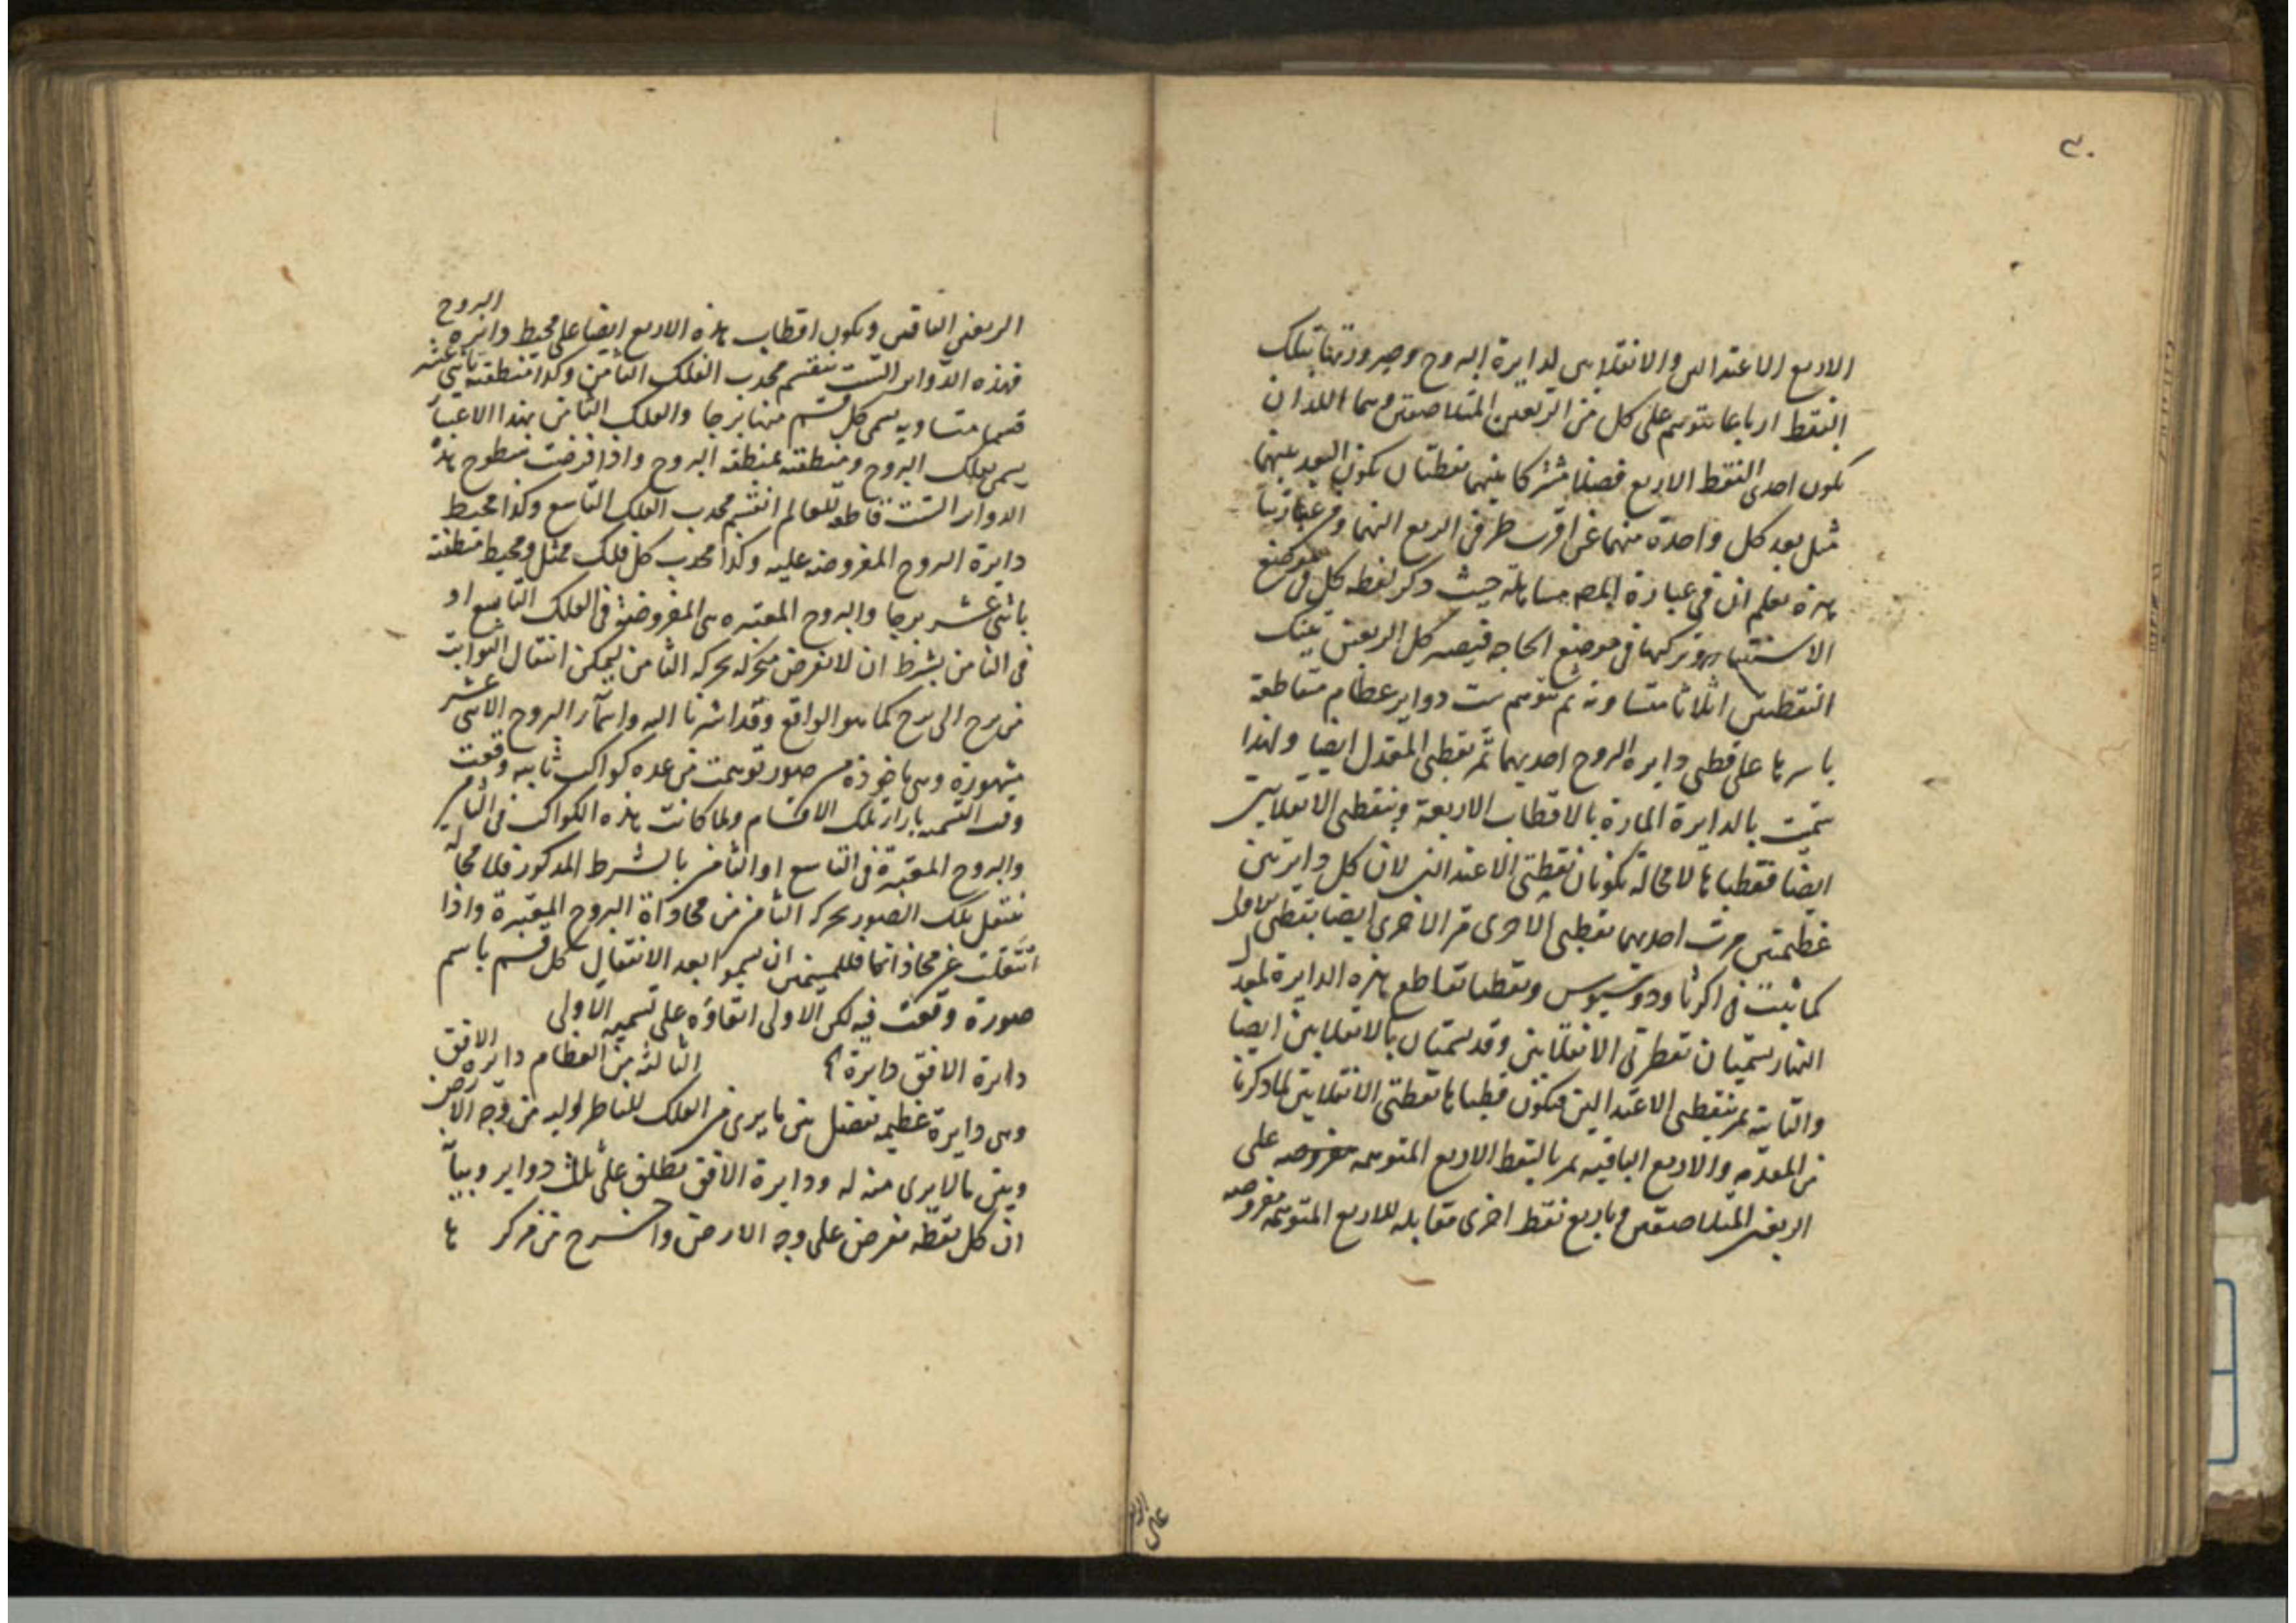 ٣٠
الاربع الاعتدالين والانقلابين لدايرة البروج وصيرورتها بتلك
النقط ارباعا يتوهم على كل من الربعين المتلاصقين وهما اللذان
يكون احدى النقط الاربع فصلا مشتركا بينهما نقطتان يكون البعد بينهما
مثل بعد كل واحدة منهما عن اقرب طرفي الربع اليها ومن عبارتنا
هذه يعلم ان في عبارة المص مساهلة حيث ذكر لفظه كل في موضع
الاستغناء وتركها في موضع الحاجة فيصير كل الربعين بتينك
النقطتين اثلاثا متساوية ثم يتوهم ست دواير عظام متقاطعة
باسرها على قطبي دايرة البروج احديهما تمر بقطبي المعدل ايضا ولهذا
سميت بالدايرة المارة بالاقطاب الاربعة وبنقطتي الانقلابين
ايضا فقطباها لا محالة يكونان نقطتي الاعتدالين لان كل دايرتين
عظيمتين مرت احديهما بقطبي الاخرى مر الاخرى ايضا بقطبي الاولى
كما ثبت في اكرثاودوسيوس ونقطتا تقاطع هذه الدايرة لمعدل
النهار يسميان نقطتي الانقلابين وقد يسميان بالانقلابين ايضا
والثانية تمر بنقطتي الاعتدالين فيكون قطباها نقطتي الانقلابين لما ذكرنا
من المقدمة والاربع الباقية تمر بالنقط الاربع المتوهمة مفروضة على
الربعين المتلاصقين وباربع نقط اخرى مقابلة للاربع المتوهمة مفروضة
على الربعين
الربعين الباقيين ويكون اقطاب هذه الاربع ايضا على محيط دايرة البروج
فهذه الدواير الست ينقسم محدب الفلك الثامن وكذا منطقته باثني عشر
قسما متساوية يسمى كل قسم منها برجا والفلك الثامن بهذا الاعتبار
يسمى بفلك البروج ومنطقته بمنطقة البروج واذا فرضت سطوح هذه
الدواير الست قاطعة للعالم انقسم محدب الفلك التاسع وكذا محيط
دايرة البروج المفروضة عليه وكذا محدب كل فلك ممثل ومحيط منطقته
باثني عشر برجا والبروج المعتبرة هي المفروضة في الفلك التاسع او
في الثامن بشرط ان لا تفرض متحركة بحركة الثامن ليمكن انتقال الثوابت
من برج الى برج كما هو الواقع وقد اشرنا اليه واسماء البروج الاثني عشر
مشهورة وهي ماخوذة من صور توهمت من عدة كواكب ثابتة وقعت
وقت التسمية بازاء تلك الاقسام ولما كانت هذه الكواكب في الثامن
والبروج المعتبرة في التاسع او الثامن بالشرط المذكور فلا محالة
ينتقل تلك الصور بحركة الثامن من محاذاة البروج المعتبرة واذا
انتقلت عن محاذاتها فللمنجمين ان يسموا بعد الانتقال كل قسم باسم
صورة وقعت فيه لكن الاولى ابقاؤه على تسمية الاولى
دايرة الافق دايرة الثالثة من العظام دايرة الافق
وهي دايرة عظيمة تفصل بين ما يرى من الفلك للناظر اليه من وجه الارض
وبين ما لا يرى منه له ودايرة الافق يطلق على ثلث دواير وبيانه
ان كل نقطة تفرض على وجه الارض واخرج من مركزها